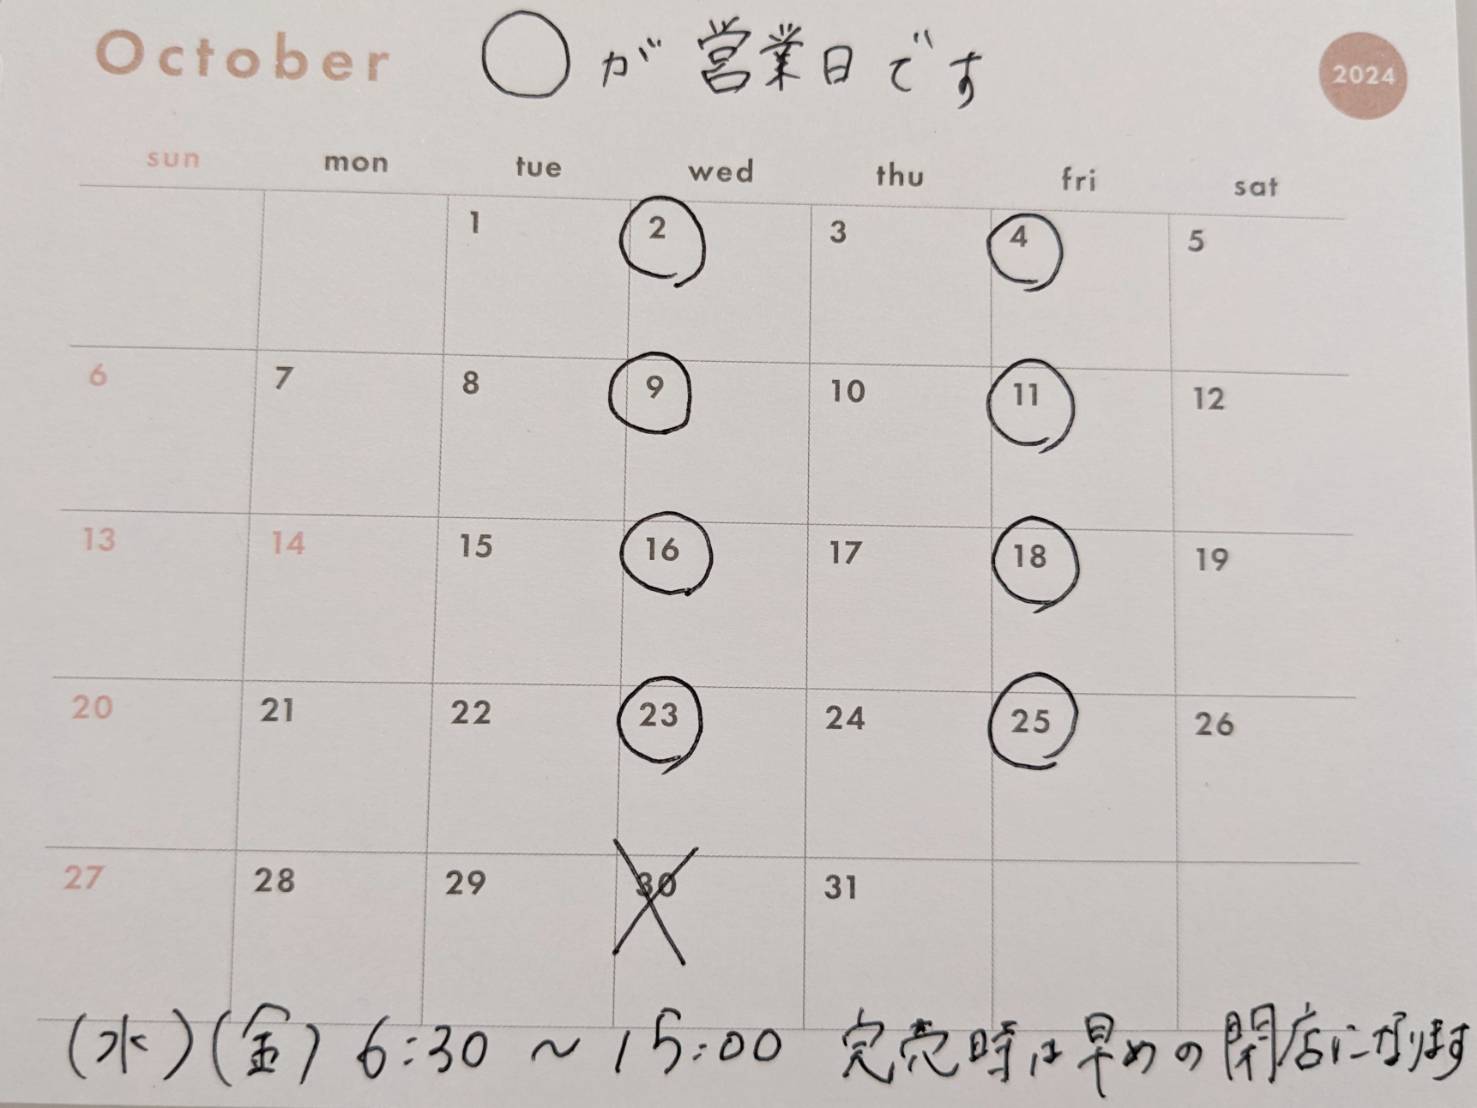 October ○が営業日です 2024
sun mon tue wed thu fri sat
1 2 3 4 5
6 7 8 9 10 11 12
13 14 15 16 17 18 19
20 21 22 23 24 25 26
27 28 29 30 31
(水)(金) 6:30 ~ 15:00 完売時は早めの閉店になります